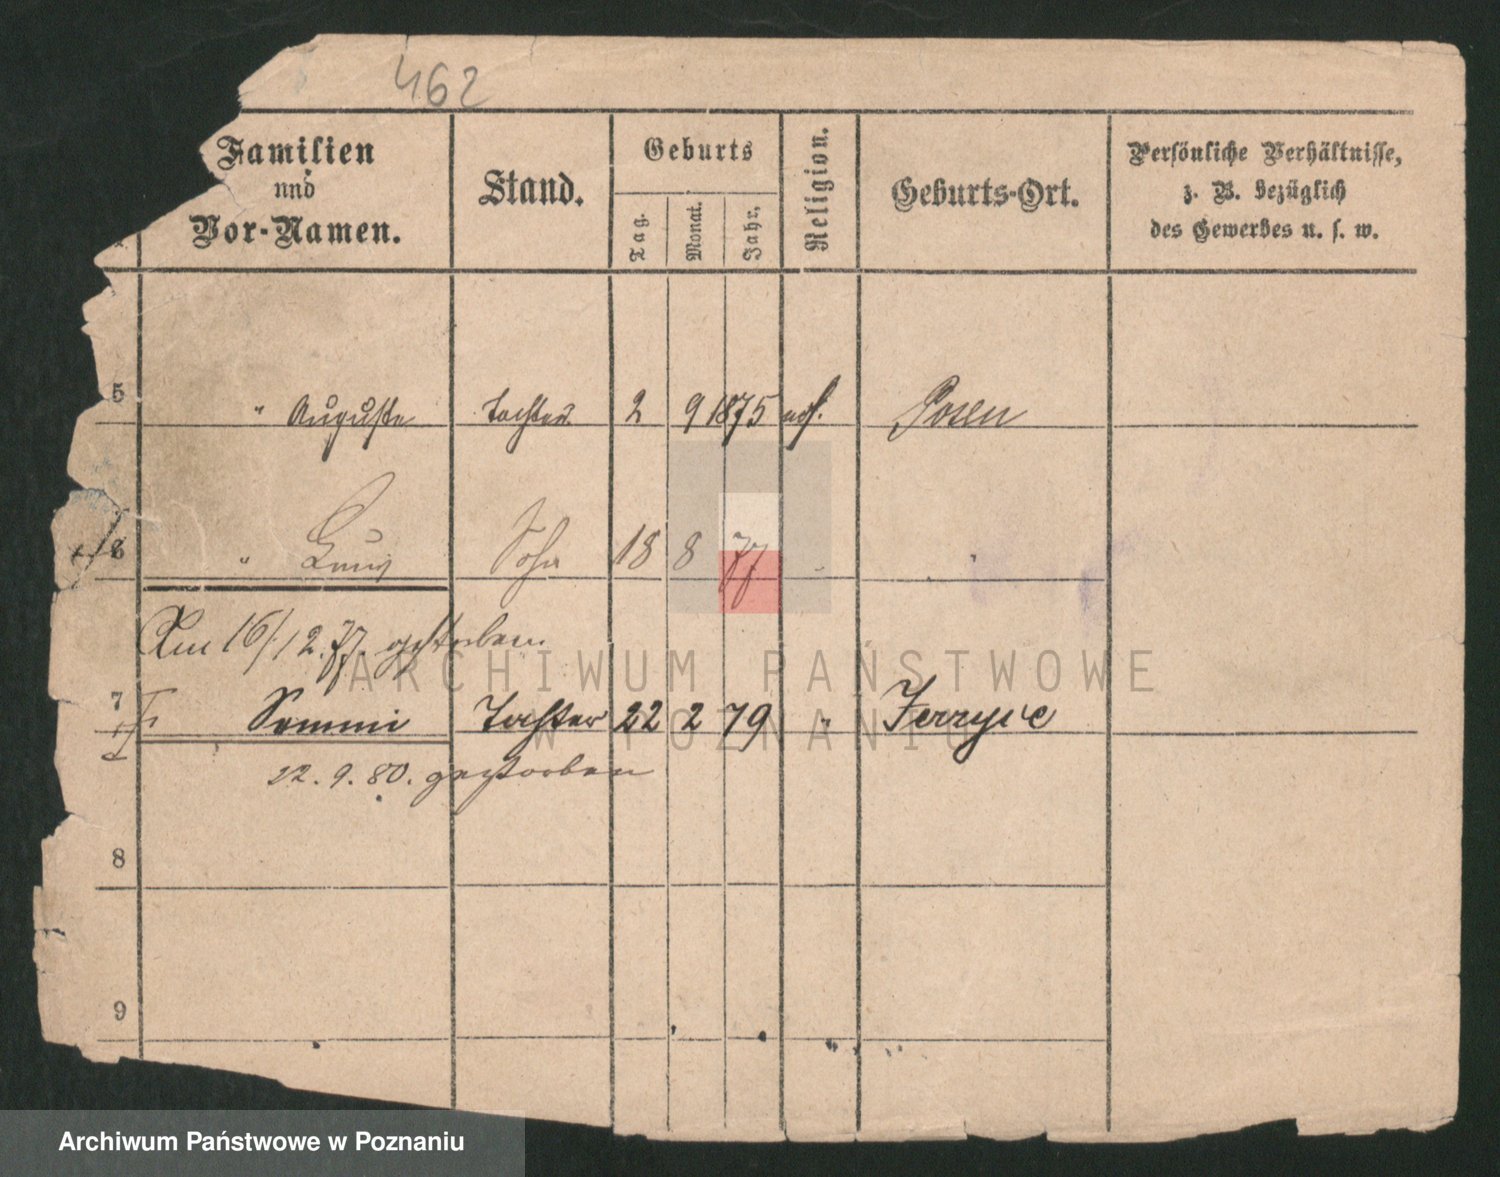 462
Familien
und
Vor-Namen.
Stand.
Geburts
Tag.
Monat.
Jahr.
Religion.
Geburts-Ort.
Persönliche Verhältnisse,
z. B. bezüglich
des Gewerbes u. s. w.
5 " Auguste Tochter 2 9 1875 Posen
6 " Louis Sohn 18 8 77 "
Am 16/12.77. gestorben.
7 Tochter 22 2 79 " Jerzyce
22.9.80. gestorben
8
9
ARCHIWUM PAŃSTWOWE
W POZNANIU
Archiwum Państwowe w Poznaniu